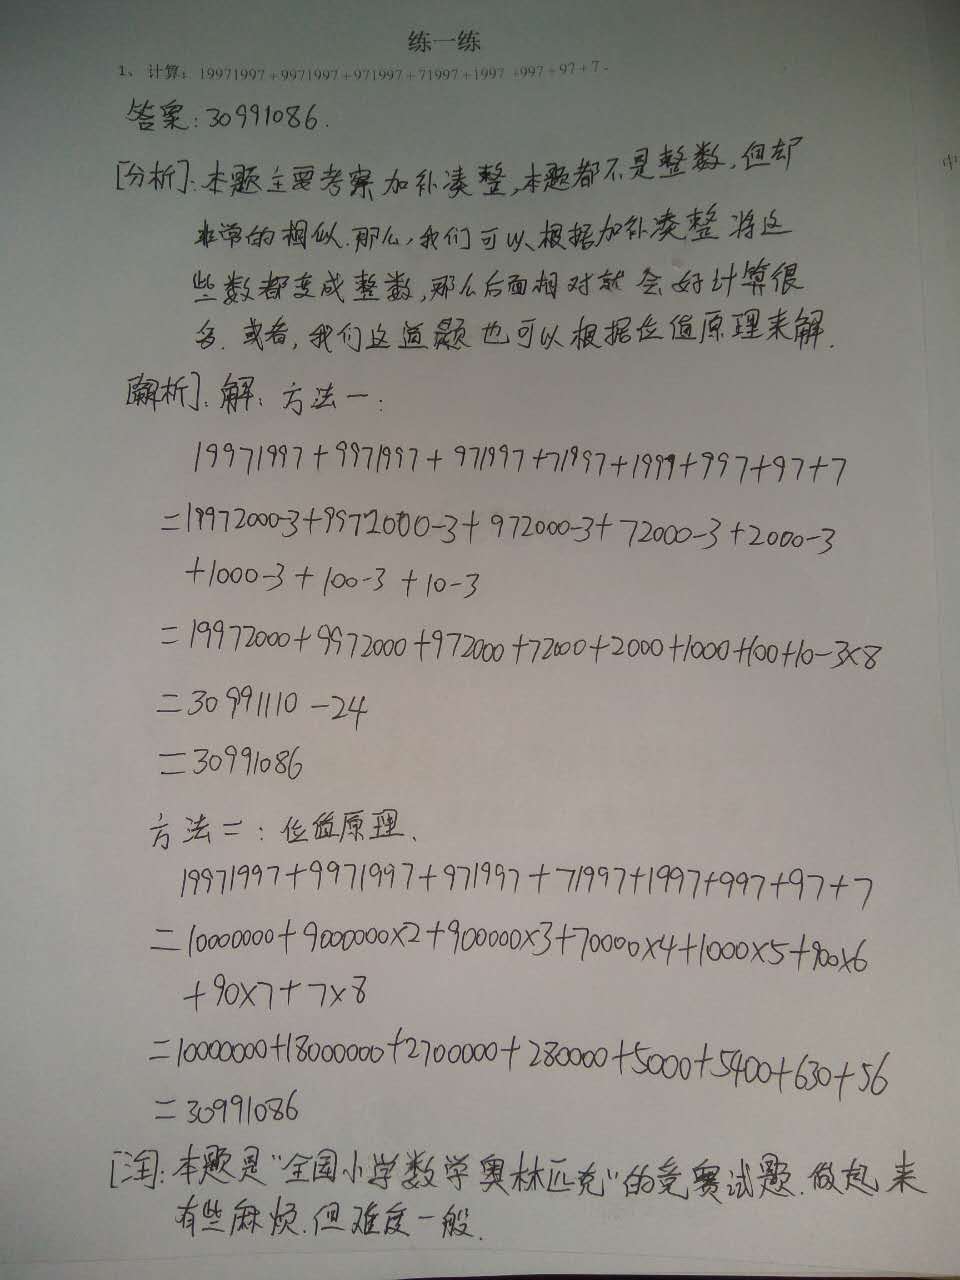 练一练
1、计算：19971997+9971997+971997+71997+1997+997+97+7=
答案:30991086.
[分析]:本题主要考察加补凑整,本题都不是整数,但却
非常的相似.那么,我们可以根据加补凑整将这
些数都变成整数,那么后面相对就会好计算很
多.或者,我们这道题也可以根据位值原理来解.
[解析]:解:方法一:
19971997+9971997+971997+71997+1997+997+97+7
=19972000-3+9972000-3+972000-3+72000-3+2000-3
+1000-3+100-3+10-3
=19972000+9972000+972000+72000+2000+1000+100+10-3×8
=30991110-24
=30991086
方法二:位值原理.
19971997+9971997+971997+71997+1997+997+97+7
=10000000+9000000×2+900000×3+70000×4+1000×5+900×6
+90×7+7×8
=10000000+18000000+2700000+280000+5000+5400+630+56
=30991086
本题是"全国小学数学奥林匹克"的竞赛试题.做起来
有些麻烦.但难度一般.